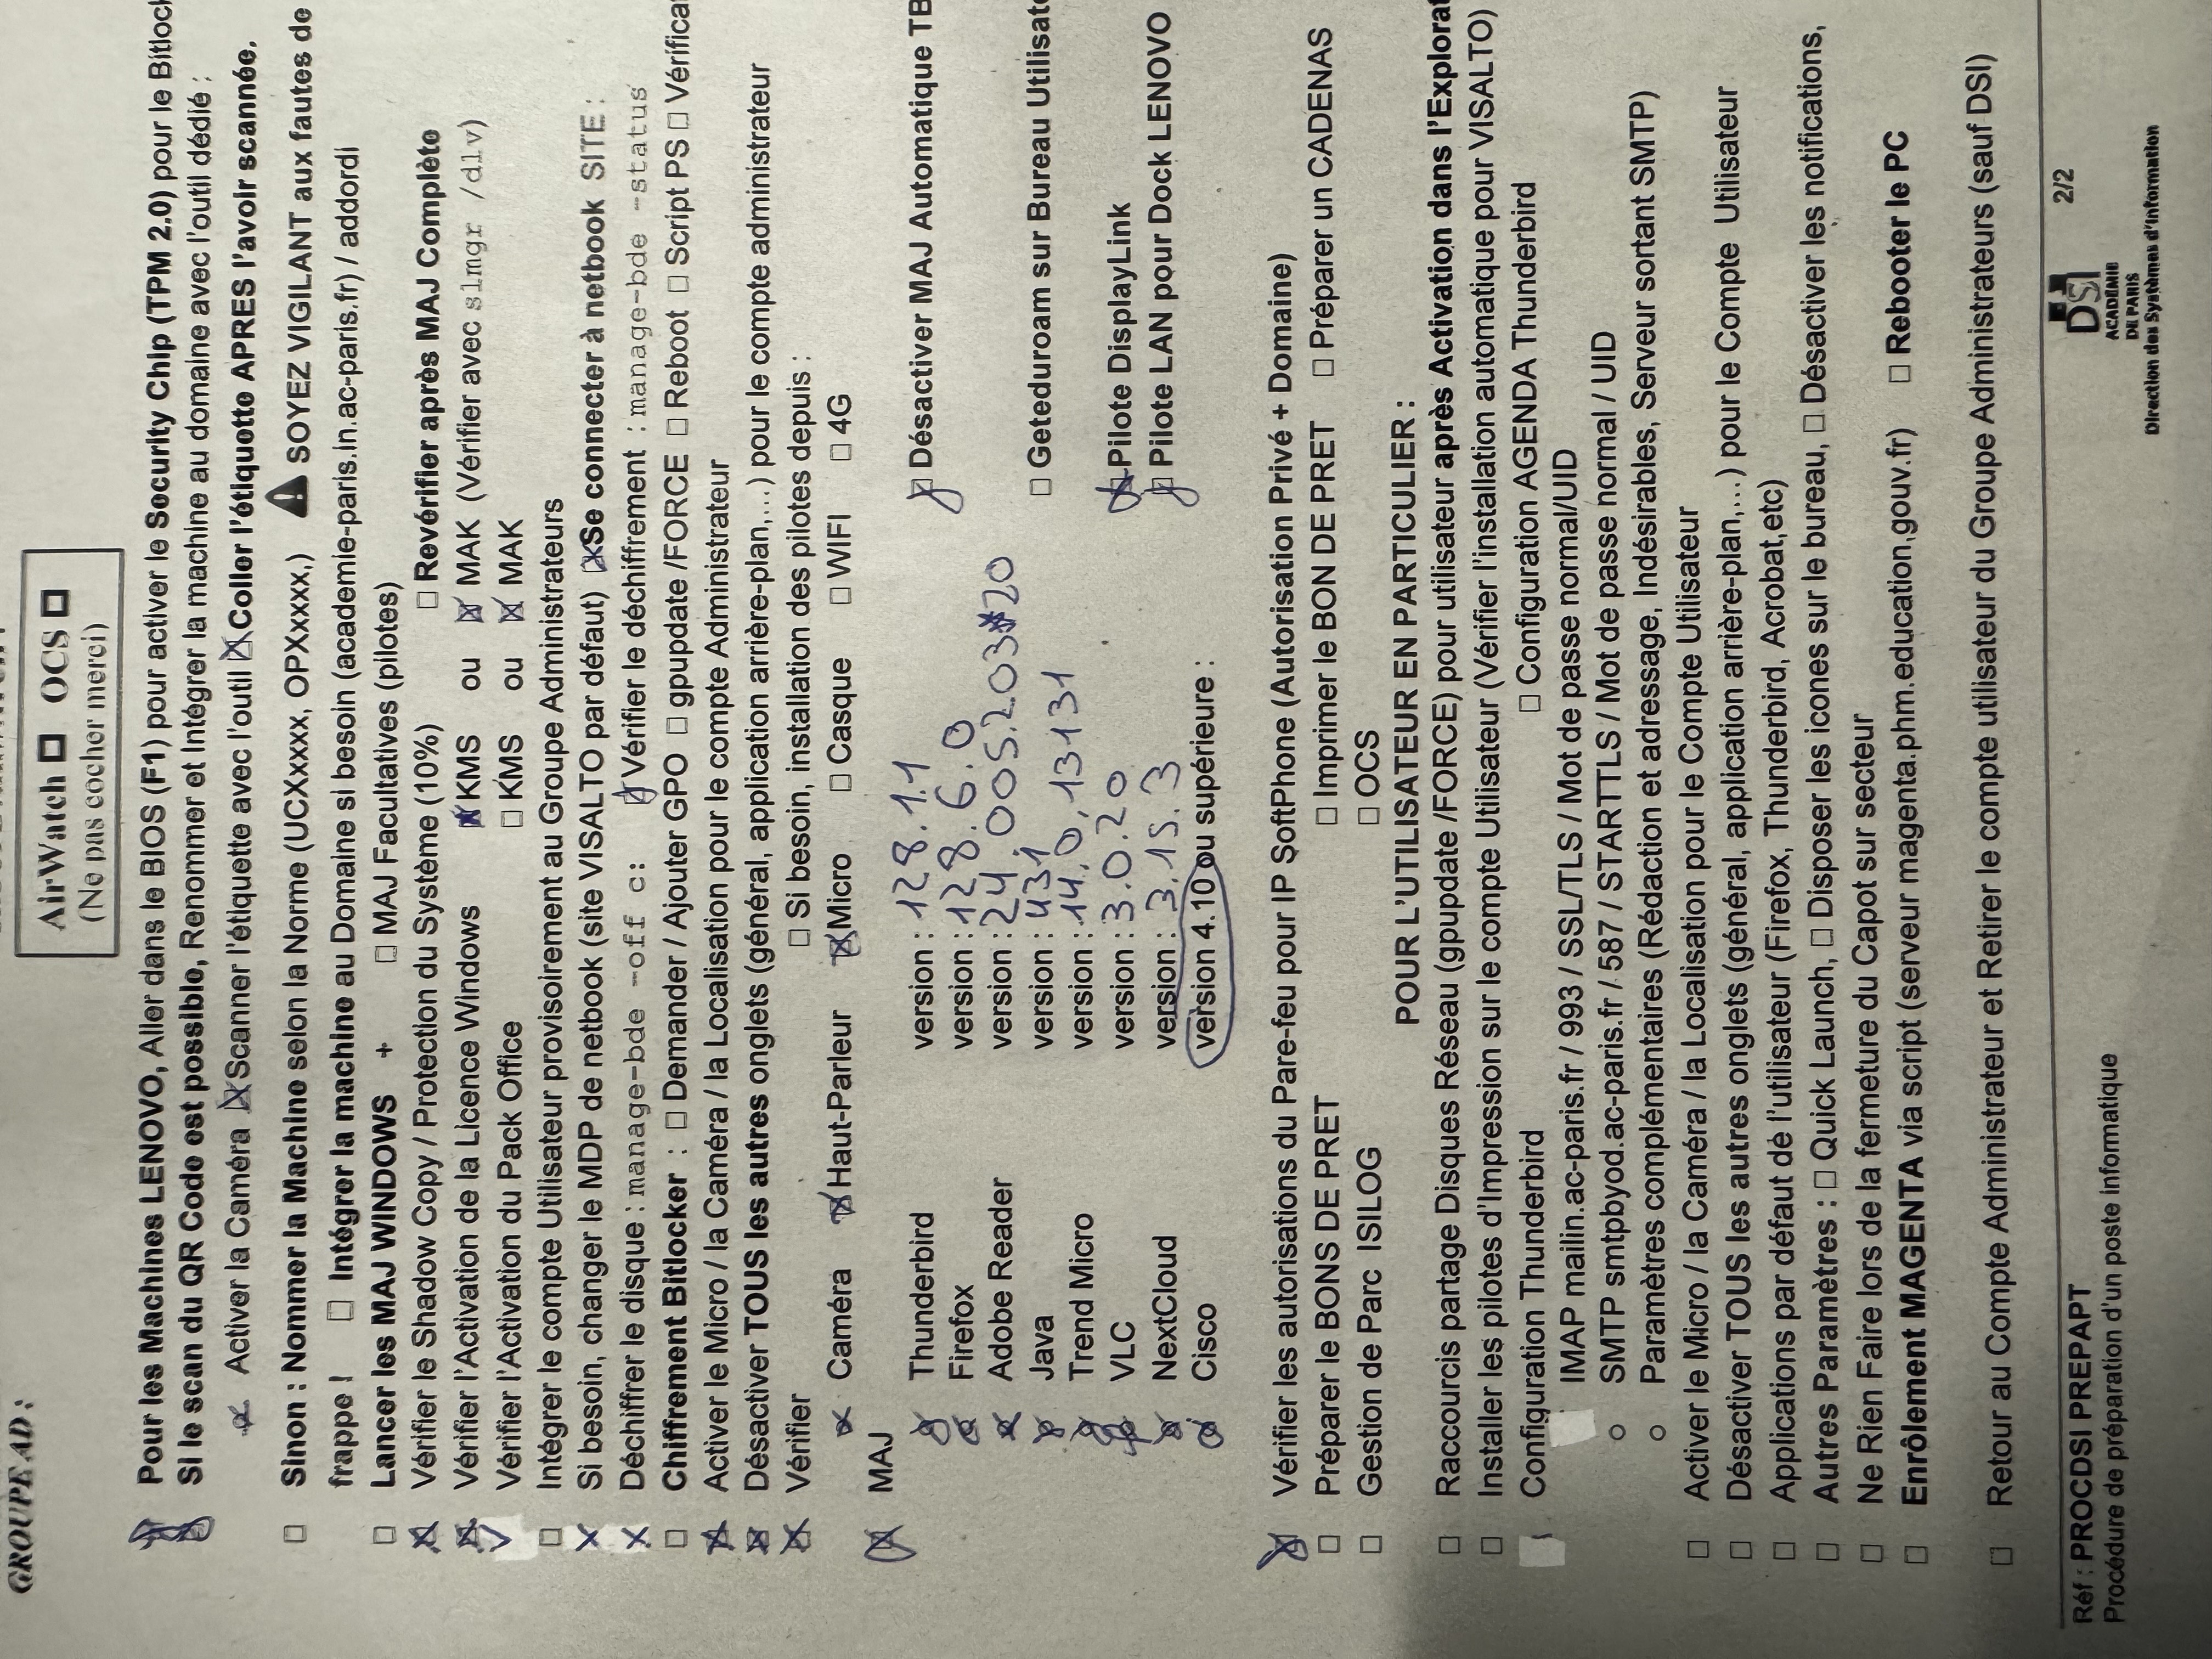 GROUPE AD :
AirWatch ☐ OCS ☐
(Ne pas cocher merci)
Pour les Machines LENOVO, Aller dans le BIOS (F1) pour activer le Security Chip (TPM 2.0) pour le Bitlock
Si le scan du QR Code est possible, Renommer et Intégrer la machine au domaine avec l'outil dédié :
Activer la Caméra ☒ Scanner l'étiquette avec l'outil ☒ Coller l'étiquette APRES l'avoir scannée.
☐ Sinon : Nommer la Machine selon la Norme (UCXxxxx, OPXxxxx,) ⚠ SOYEZ VIGILANT aux fautes de
frappe ! ☐ Intégrer la machine au Domaine si besoin (academie-paris.in.ac-paris.fr) / addordi
☐ Lancer les MAJ WINDOWS + ☐ MAJ Facultatives (pilotes)
☒ Vérifier le Shadow Copy / Protection du Système (10%) ☐ Revérifier après MAJ Complète
☒ Vérifier l'Activation de la Licence Windows ☒ KMS ou ☒ MAK (Vérifier avec slmgr /dlv)
✓ Vérifier l'Activation du Pack Office ☐ KMS ou ☒ MAK
☐ Intégrer le compte Utilisateur provisoirement au Groupe Administrateurs
☒ Si besoin, changer le MDP de netbook (site VISALTO par défaut) ☒ Se connecter à netbook SITE :
☒ Déchiffrer le disque : manage-bde -off c: ☒ Vérifier le déchiffrement : manage-bde -status
☐ Chiffrement Bitlocker : ☐ Demander / Ajouter GPO ☐ gpupdate /FORCE ☐ Reboot ☐ Script PS ☐ Vérifica
☒ Activer le Micro / la Caméra / la Localisation pour le compte Administrateur
☒ Désactiver TOUS les autres onglets (général, application arrière-plan,...) pour le compte administrateur
☒ Vérifier ☐ Si besoin, installation des pilotes depuis :
☒ Caméra ☒ Haut-Parleur ☒ Micro ☐ Casque ☐ WIFI ☐ 4G
☒ MAJ
Thunderbird version : 128.1.1 ☒ Désactiver MAJ Automatique TB
Firefox version : 128.6.0
Adobe Reader version : 24.005.20320
Java version : 431 ☐ Geteduroam sur Bureau Utilisate
Trend Micro version : 14.0.13131
VLC version : 3.0.20 ☒ Pilote DisplayLink
NextCloud version : 3.15.3 ☒ Pilote LAN pour Dock LENOVO
Cisco version 4.10 ou supérieure :
☒ Vérifier les autorisations du Pare-feu pour IP SoftPhone (Autorisation Privé + Domaine)
☐ Préparer le BONS DE PRET ☐ Imprimer le BON DE PRET ☐ Préparer un CADENAS
☐ Gestion de Parc ISILOG ☐ OCS
POUR L'UTILISATEUR EN PARTICULIER :
☐ Raccourcis partage Disques Réseau (gpupdate /FORCE) pour utilisateur après Activation dans l'Explorat
☐ Installer les pilotes d'Impression sur le compte Utilisateur (Vérifier l'installation automatique pour VISALTO)
Configuration Thunderbird ☐ Configuration AGENDA Thunderbird
IMAP mailin.ac-paris.fr / 993 / SSL/TLS / Mot de passe normal/UID
o SMTP smtpbyod.ac-paris.fr / 587 / STARTTLS / Mot de passe normal / UID
o Paramètres complémentaires (Rédaction et adressage, Indésirables, Serveur sortant SMTP)
☐ Activer le Micro / la Caméra / la Localisation pour le Compte Utilisateur
☐ Désactiver TOUS les autres onglets (général, application arrière-plan,...) pour le Compte Utilisateur
☐ Applications par défaut de l'utilisateur (Firefox, Thunderbird, Acrobat,etc)
☐ Autres Paramètres : ☐ Quick Launch, ☐ Disposer les icones sur le bureau, ☐ Désactiver les notifications,
☐ Ne Rien Faire lors de la fermeture du Capot sur secteur
☐ Enrôlement MAGENTA via script (serveur magenta.phm.education.gouv.fr) ☐ Rebooter le PC
☐ Retour au Compte Administrateur et Retirer le compte utilisateur du Groupe Administrateurs (sauf DSI)
Réf : PROCDSI PREPAPT
Procédure de préparation d'un poste informatique
2/2
DSI
ACADÉMIE
DE PARIS
Direction des Systèmes d'Information